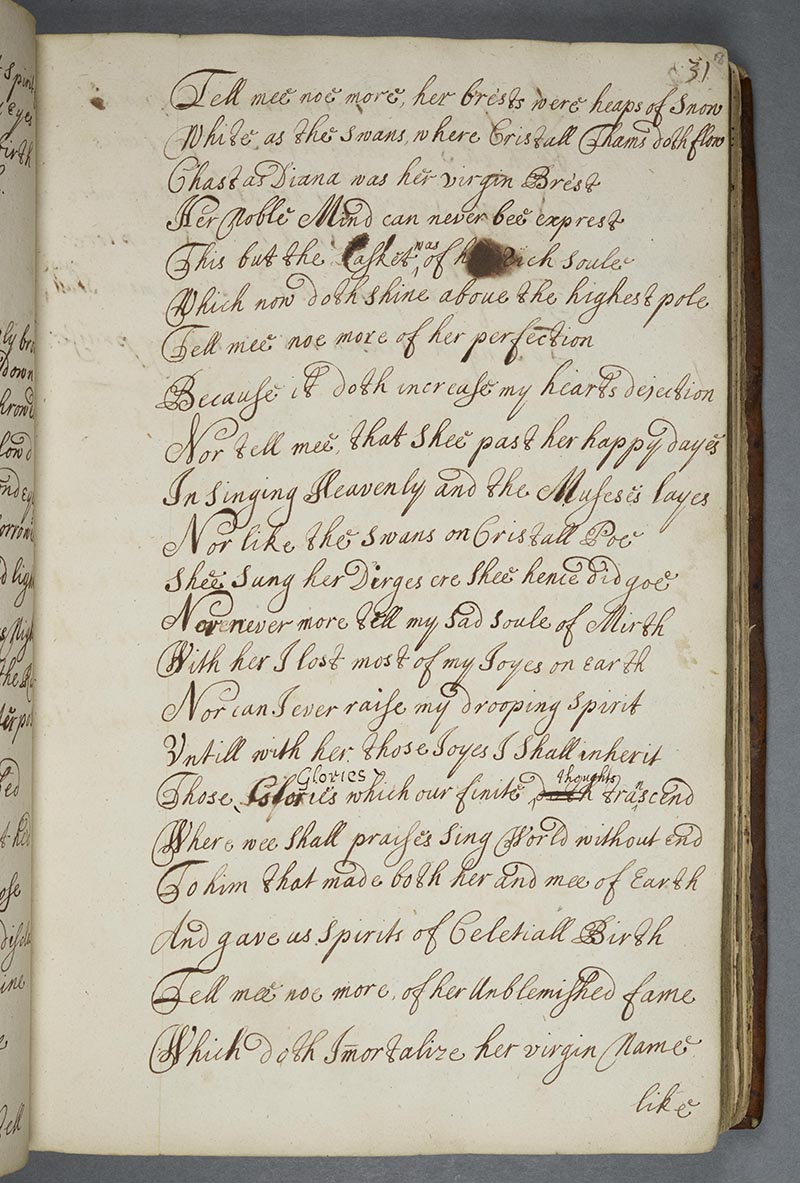 31
Tell mee noe more, her brests were heaps of Snow
White as the swans where Cristall Thams doth flow
Chast as Diana was her virgin Brest
Her Noble Mind can never bee exprest
This but the Casket was of h Rich soule
Which now doth shine aboue the highest pole
Tell mee noe more of her perfection
Because it doth increase my hearts dejection
Nor tell mee, that Shee past her happy dayes
In singing Heavenly and the Museses layes
Nor like the swans on Cristall Poe
Shee Sung her Dirges ere Shee hence did goe
Never never more tell my sad soule of Mirth
With her I lost most of my Joyes on Earth
Nor can I ever raise my drooping Spirit
Vntill with her those Joyes I Shall inherit
Those Glories Glories which our finite doth thoughts transcend
Where wee Shall praises Sing World without end
To him that made both her and mee of Earth
And gave us Spirits of Celetiall Birth
Tell mee noe more, of her Unblemished fame
Which doth Imortalize her virgin Name
like